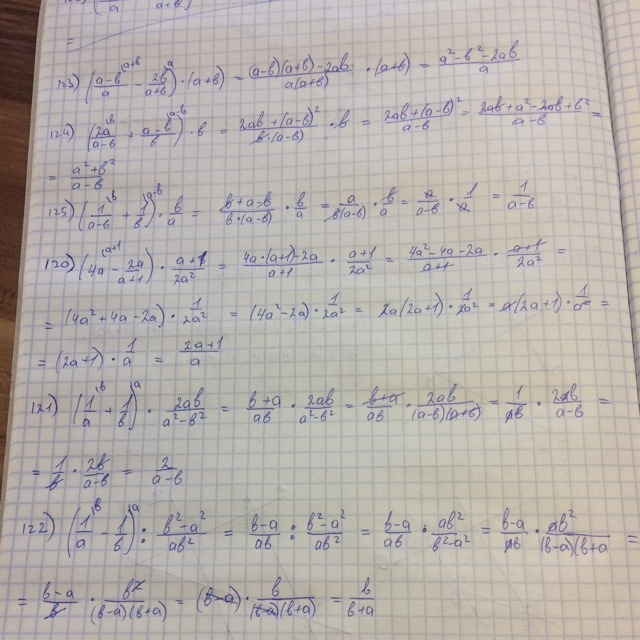 =
123) (a-b/a^(a+b) - 2b/a+b^a) · (a+b) = (a-b)(a+b)-2ab/a(a+b) · (a+b) = a²-b²-2ab/a
124) (2a/a-b^b + a-b/b^(a-b)) · b = 2ab+(a-b)²/b·(a-b) · b = 2ab+(a-b)²/a-b = 2ab+a²-2ab+b²/a-b =
= a²+b²/a-b
125) (1/a-b^b + 1/b^(a-b)) · b/a = b+a-b/b·(a-b) · b/a = a/b(a-b) · b/a = a/a-b · 1/a = 1/a-b
120) (4a^(a+1) - 2a/a+1) · a+1/2a² = 4a·(a+1)-2a/a+1 · a+1/2a² = 4a²-4a-2a/a+1 · a+1/2a² =
= (4a²+4a-2a) · 1/2a² = (4a²-2a) · 1/2a² = 2a(2a+1) · 1/2a² = a(2a+1) · 1/a² =
= (2a+1) · 1/a = 2a+1/a
121) (1/a^b + 1/b^a) · 2ab/a²-b² = b+a/ab · 2ab/a²-b² = b+a/ab · 2ab/(a-b)(a+b) = 1/ab · 2ab/a-b =
= 1/b · 2b/a-b = 2/a-b
122) (1/a^b - 1/b^a) : b²-a²/ab² = b-a/ab : b²-a²/ab² = b-a/ab · ab²/b²-a² = b-a/ab · ab²/(b-a)(b+a =
= b-a/b · b²/(b-a)(b+a) = (b-a) · b/(b-a)(b+a) = b/b+a